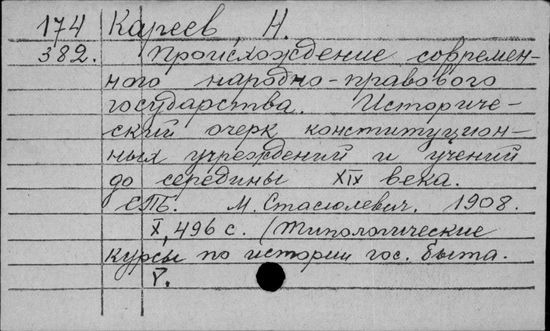 174 Кареев Н.
382. Происхождение современ-
ного народно-правового
государства. Историче-
ский очерк конституцион-
ных учреждений и учений
до середины XIX века.
СПБ. М. Стасюлевич. 1908.
X, 496 с. (Типологические
курсы по истории гос. быта.
V.